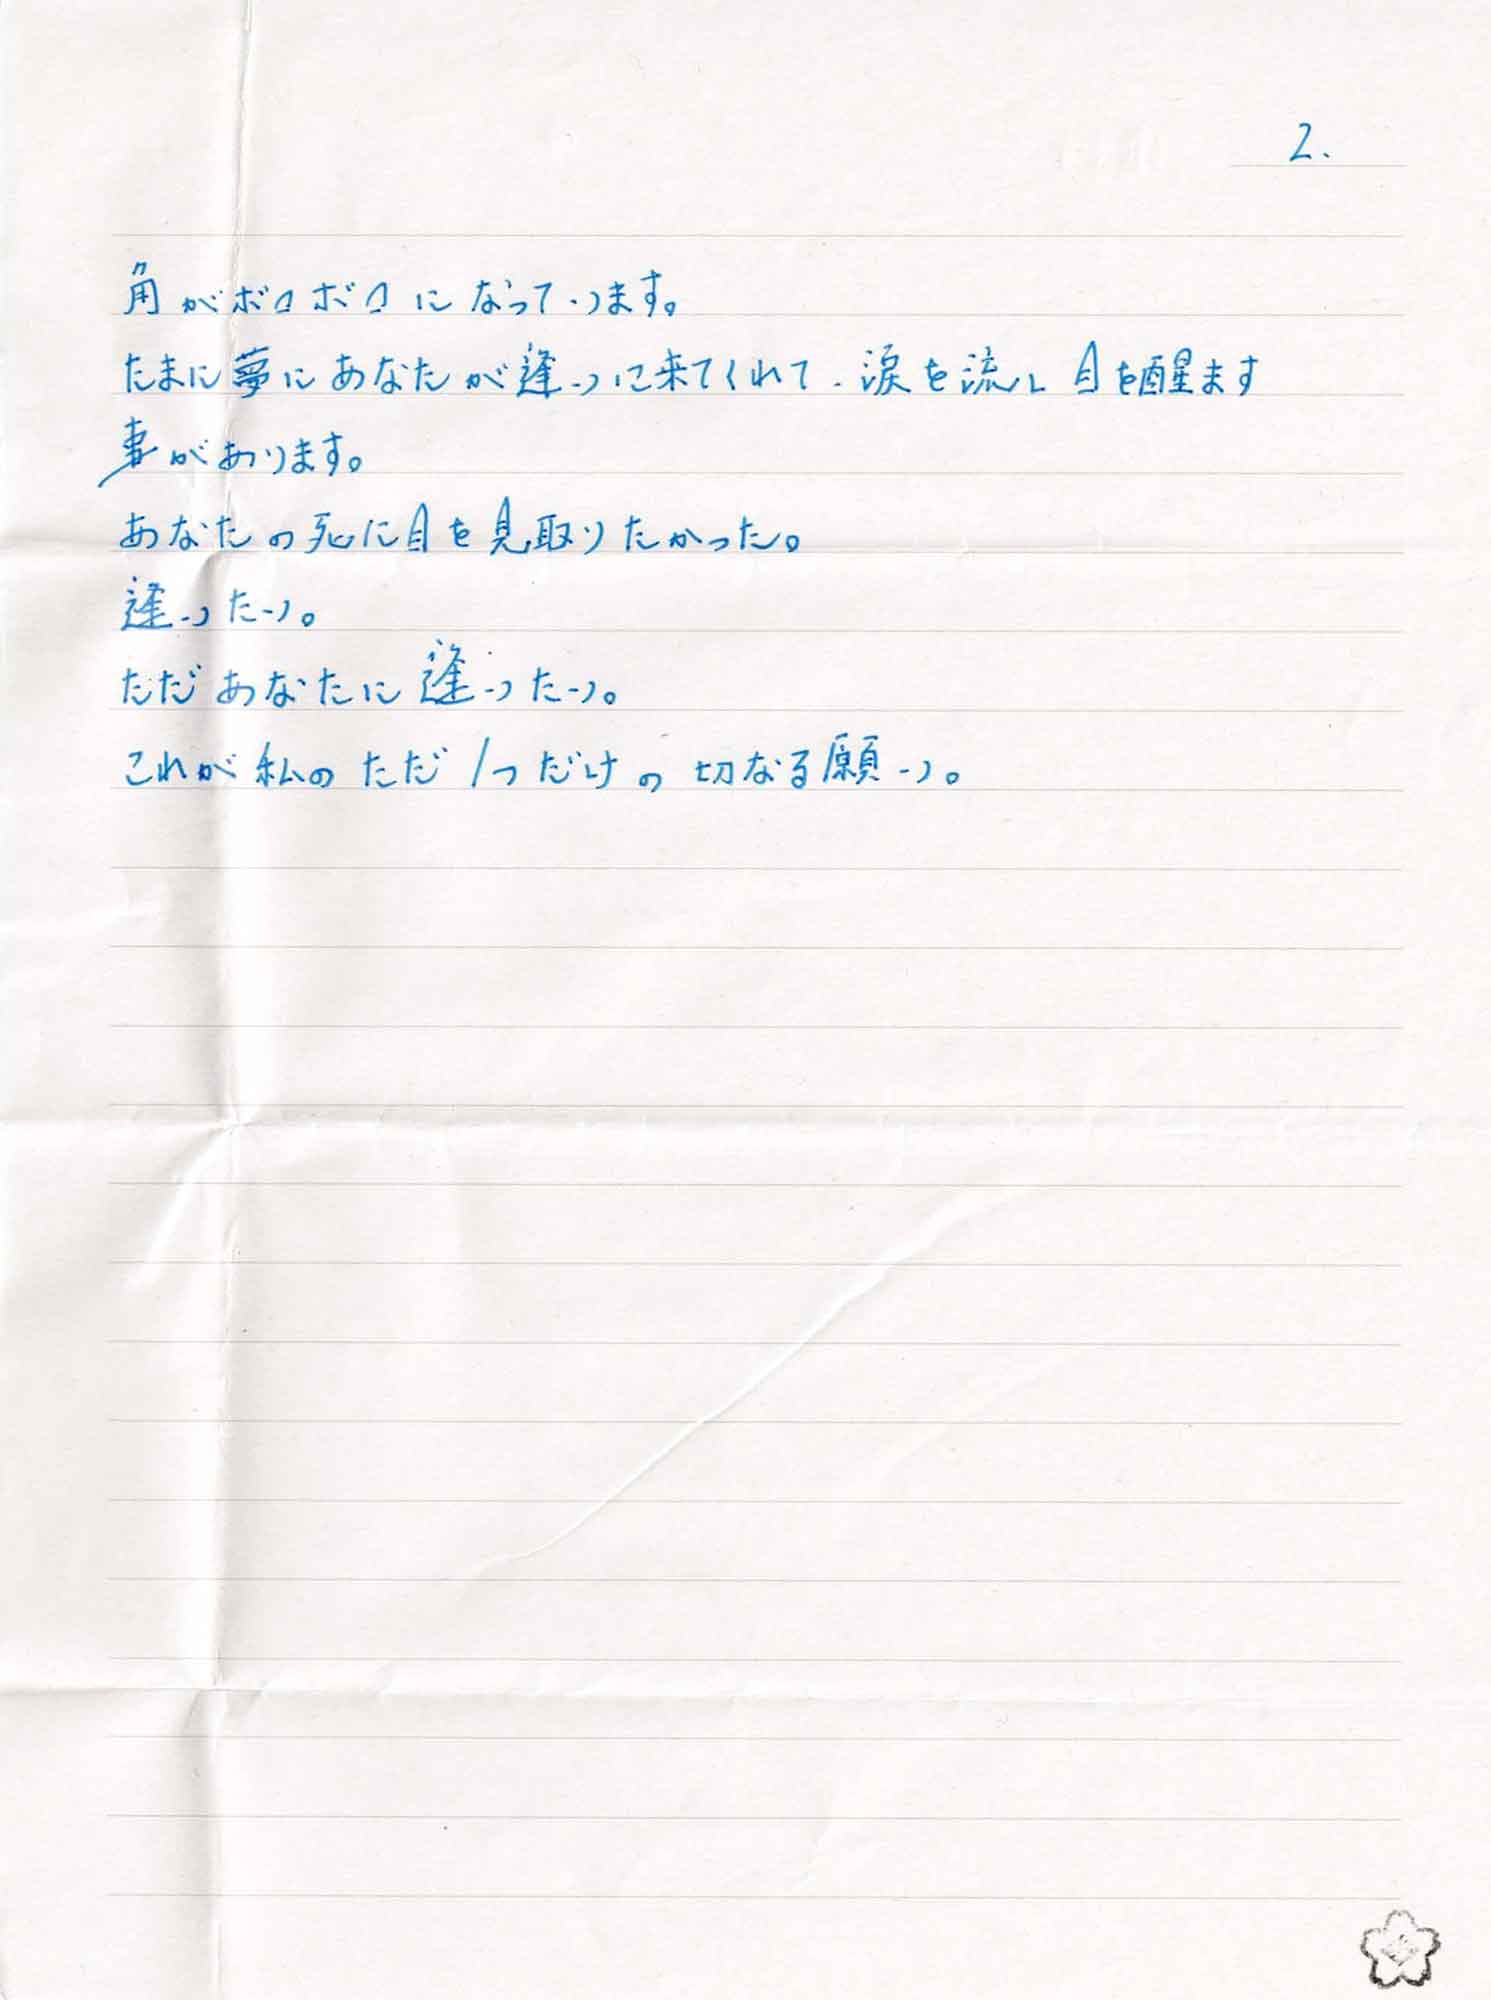 2.
角がボロボロになっています。
たまに夢にあなたが逢いに来てくれて、涙を流し目を醒ます
事があります。
あなたの死に目を見取りたかった。
逢いたい。
ただあなたに逢いたい。
これが私のただ1つだけの切なる願い。